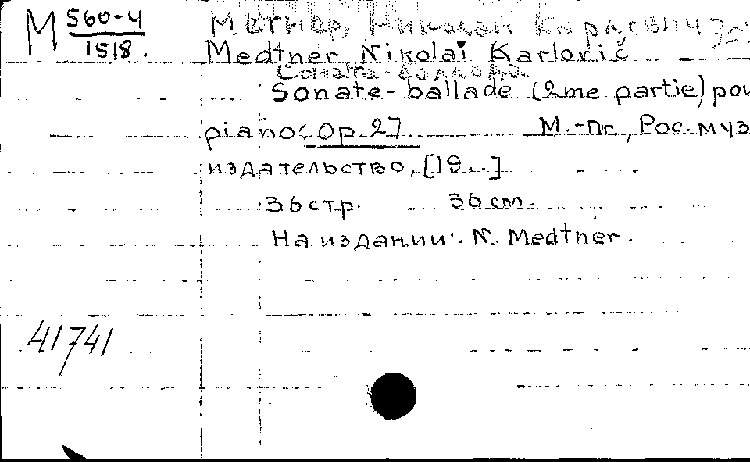 М 560-4
1518.
Метнер, Николай Карлович
Medtner Nikolaï Karlovič
Соната-баллада
Sonate-ballade (2me partie) pou
piano. Op. 27. М.-Пг., Рос. муз
издательство, [19...]
36 стр. 36 cm.
На издании: N. Medtner.
41741